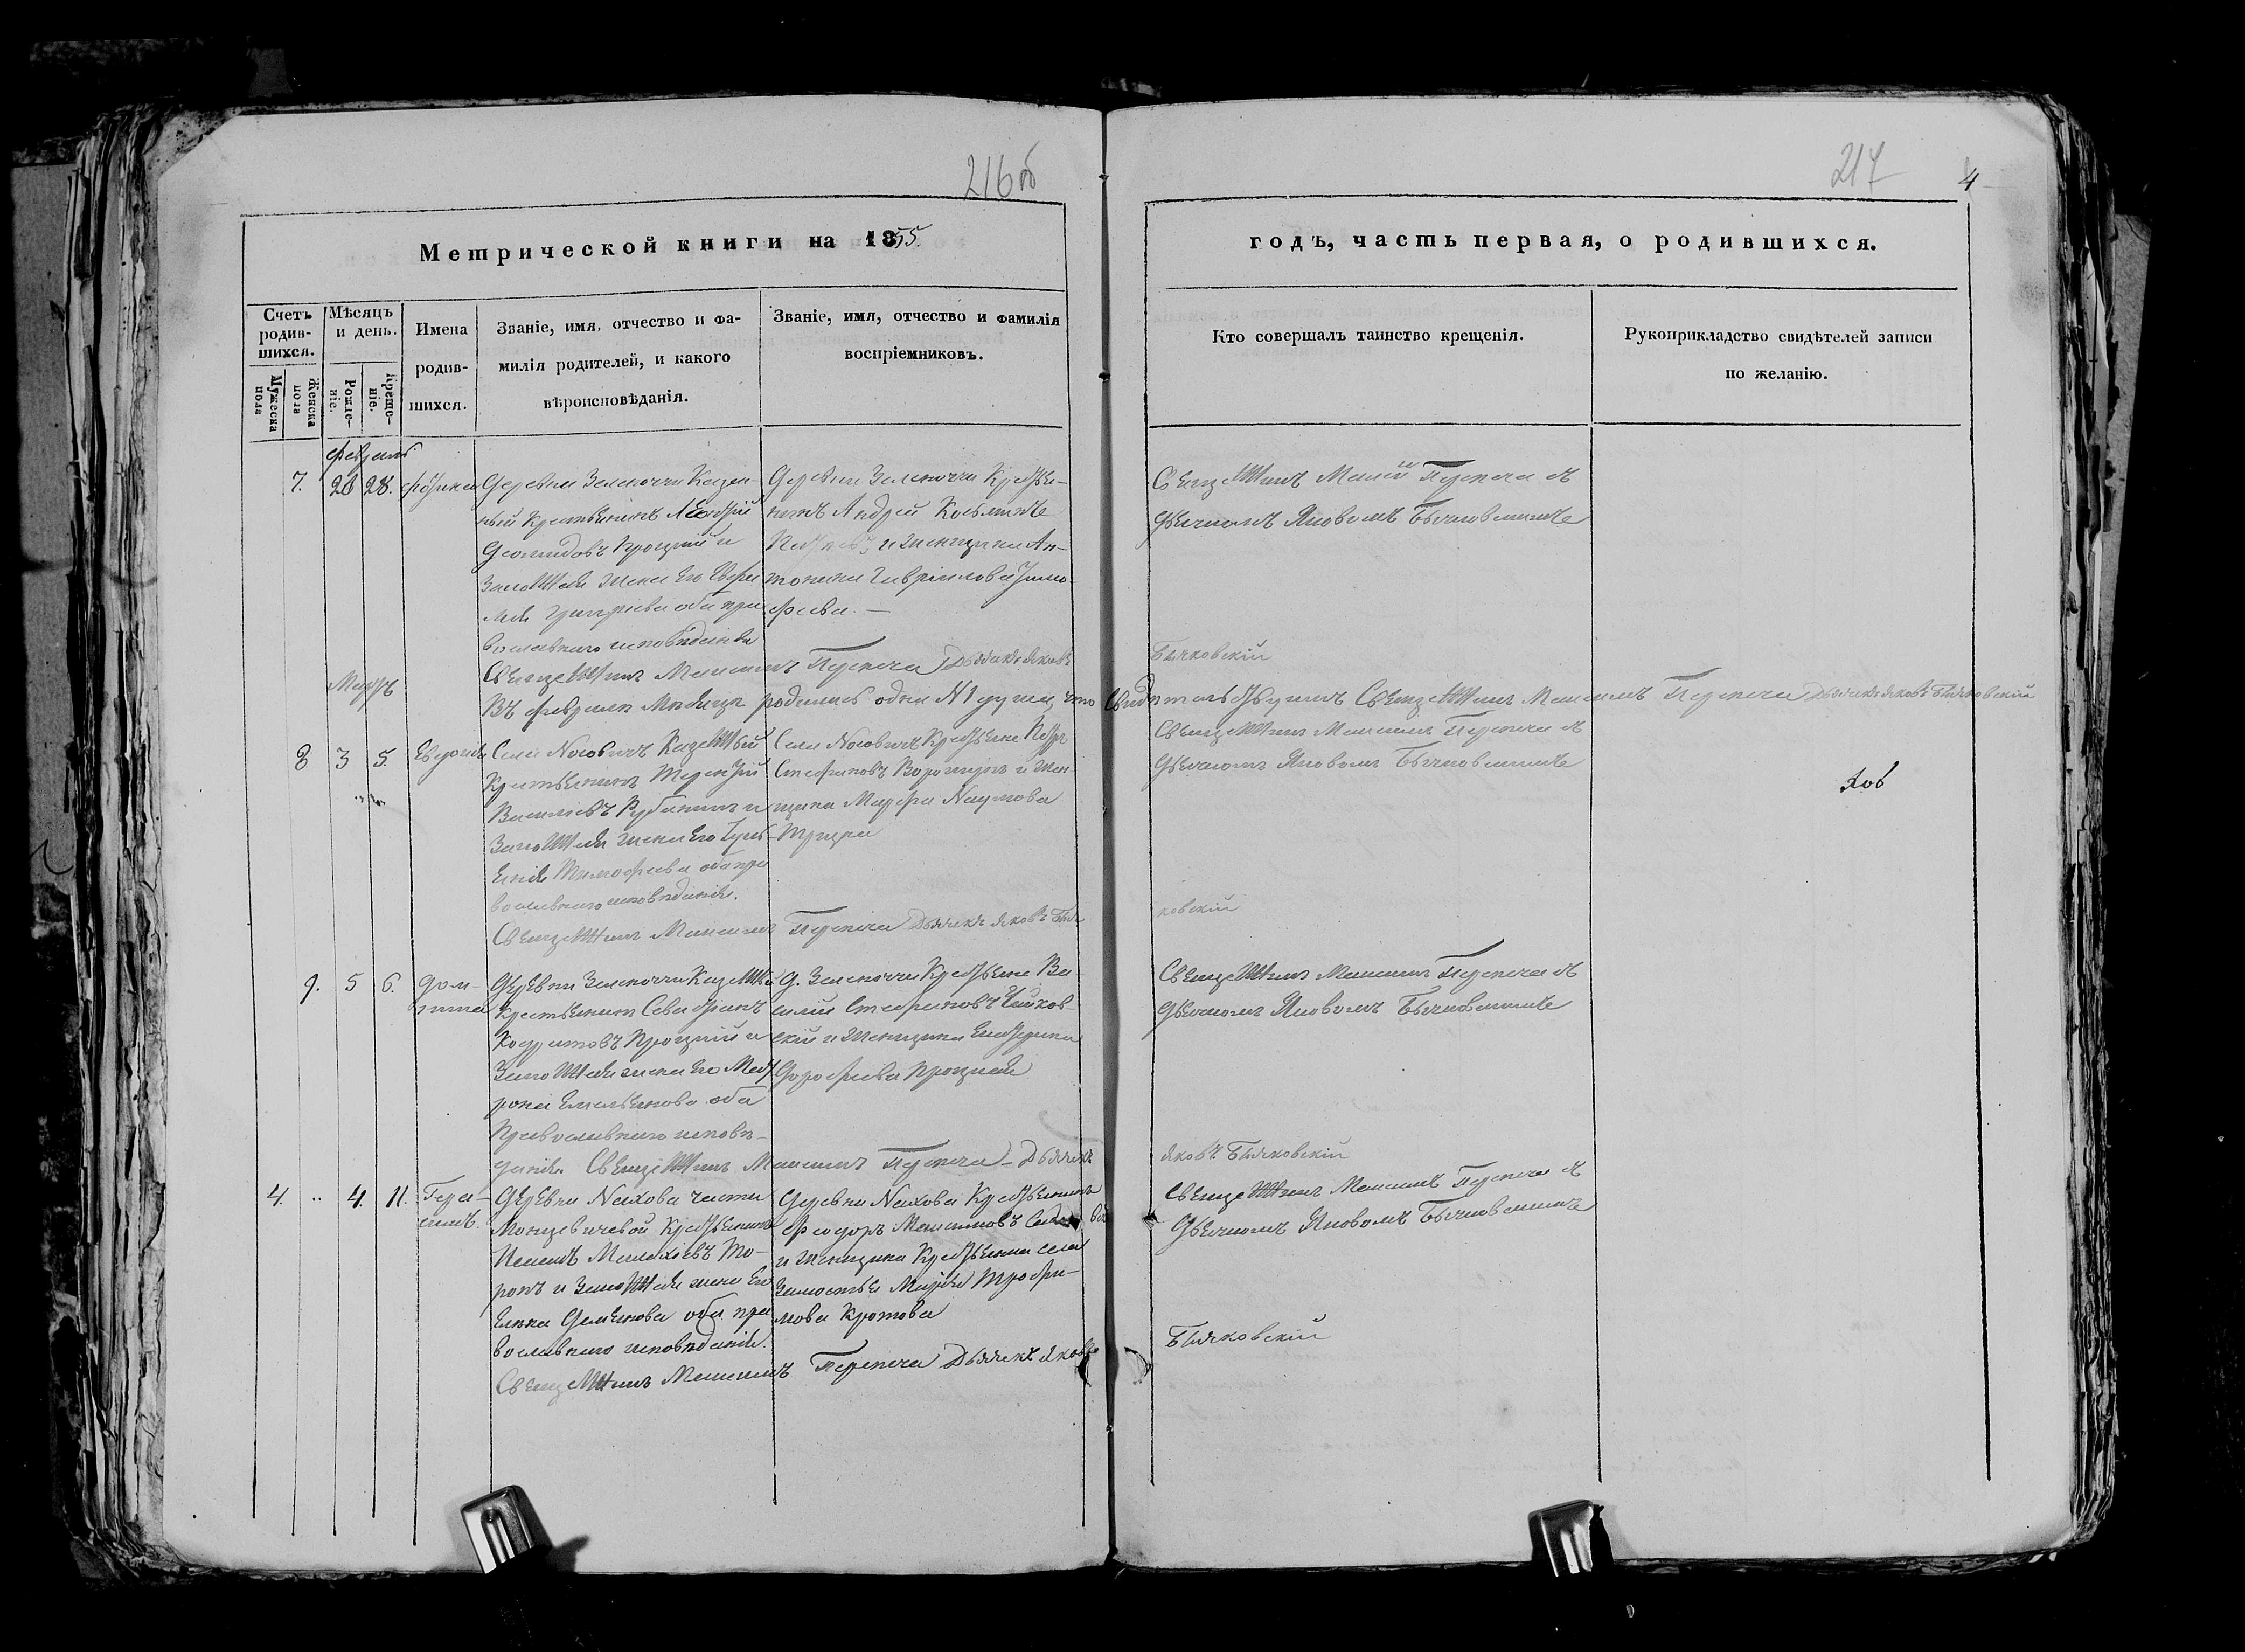 216об
217
4
Метрической книги на 1855.
годъ, часть первая, о родившихся.
Счетъ родив-шихся.
Мужеска пола
Женска пола
Мѣсяцъ и день.
Рожде-ніе.
Креще-ніе.
Имена родив-шихся.
Званіе, имя, отчество и фа-
милія родителей, и какого
вѣроисповѣданія.
Званіе, имя, отчество и фамилія
воспріемниковъ.
Кто совершалъ таинство крещенія.
Рукоприкладство свидѣтелей записи
по желанію.
Февраль
7. 26 28.
Деревни Зеленочи Казен-
ный Крестьянинъ
Процкій и
Законная жена Его Евфи
мія Григорьева оба пра
вославнаго исповѣданія
Деревни Зеленочи Крестья-
нинъ Андрей Козьминъ
и женщина Ан-
тонина Гавріилова Тимо-
феева. —
Священникъ Максимъ Перепеча съ
Дьячкомъ Яковомъ Бычковскимъ
Священникъ Максимъ Перепеча Дьячекъ Яковъ
Бычковскій
Мартъ
Въ февралѣ Мѣсяцѣ родилась одна №1 душа, что Свидѣтельствуемъ Священникъ Максимъ Перепеча Дьячекъ Яковъ Бычковскій
8 3 5. Евдокія
Села Носовичъ Казенный
Крестьянинъ Терентій
Васильевъ Рубанинъ и
Законная жена Его
Тимофеева оба пра
вославнаго исповѣданія.
Села Носовичъ Крестьяне Петръ
Стефановъ и Жен-
щина Марфа Наумова
Священникъ Максимъ Перепеча съ
Дьячкомъ Яковомъ Бычковскимъ
Яков
Священникъ Максимъ Перепеча Дьячекъ Яковъ Быч
ковскій
9. 5 6. Дом-
ника
Деревни Зеленочи Казенный
Крестьянинъ Севастіанъ
Кодратовъ Процкій и
Законная жена Его Мат
рона Емельянова оба
Православнаго исповѣ-
данія.
Д. Зеленочи Крестьяне Ва-
силій Стефановъ Чайков-
скій и Женщина Екатерина
Дорофеева Процкая
Священникъ Максимъ Перепеча съ
Дьячкомъ Яковомъ Бычковскимъ
Священникъ Максимъ Перепеча - Дьячекъ
Яковъ Бычковскій
4. .. 4. 11. Гера-
симъ.
Деревни Nахова части
Монцевичевой Крестьянинъ
Малахіевъ То-
ропъ и Законная жена Его
Елена Семенова оба пра
вославнаго исповѣданія.
Деревни Nахова Крестьянинъ
Феодоръ Максимовъ
и Женщина Крестьянка села
Замостья Марья Трофи-
мова Кротова
Священникъ Максимъ Перепеча съ
Дьячкомъ Яковомъ Бычковскимъ
Священникъ Максимъ Перепеча Дьячекъ Яковъ
Бычковскій